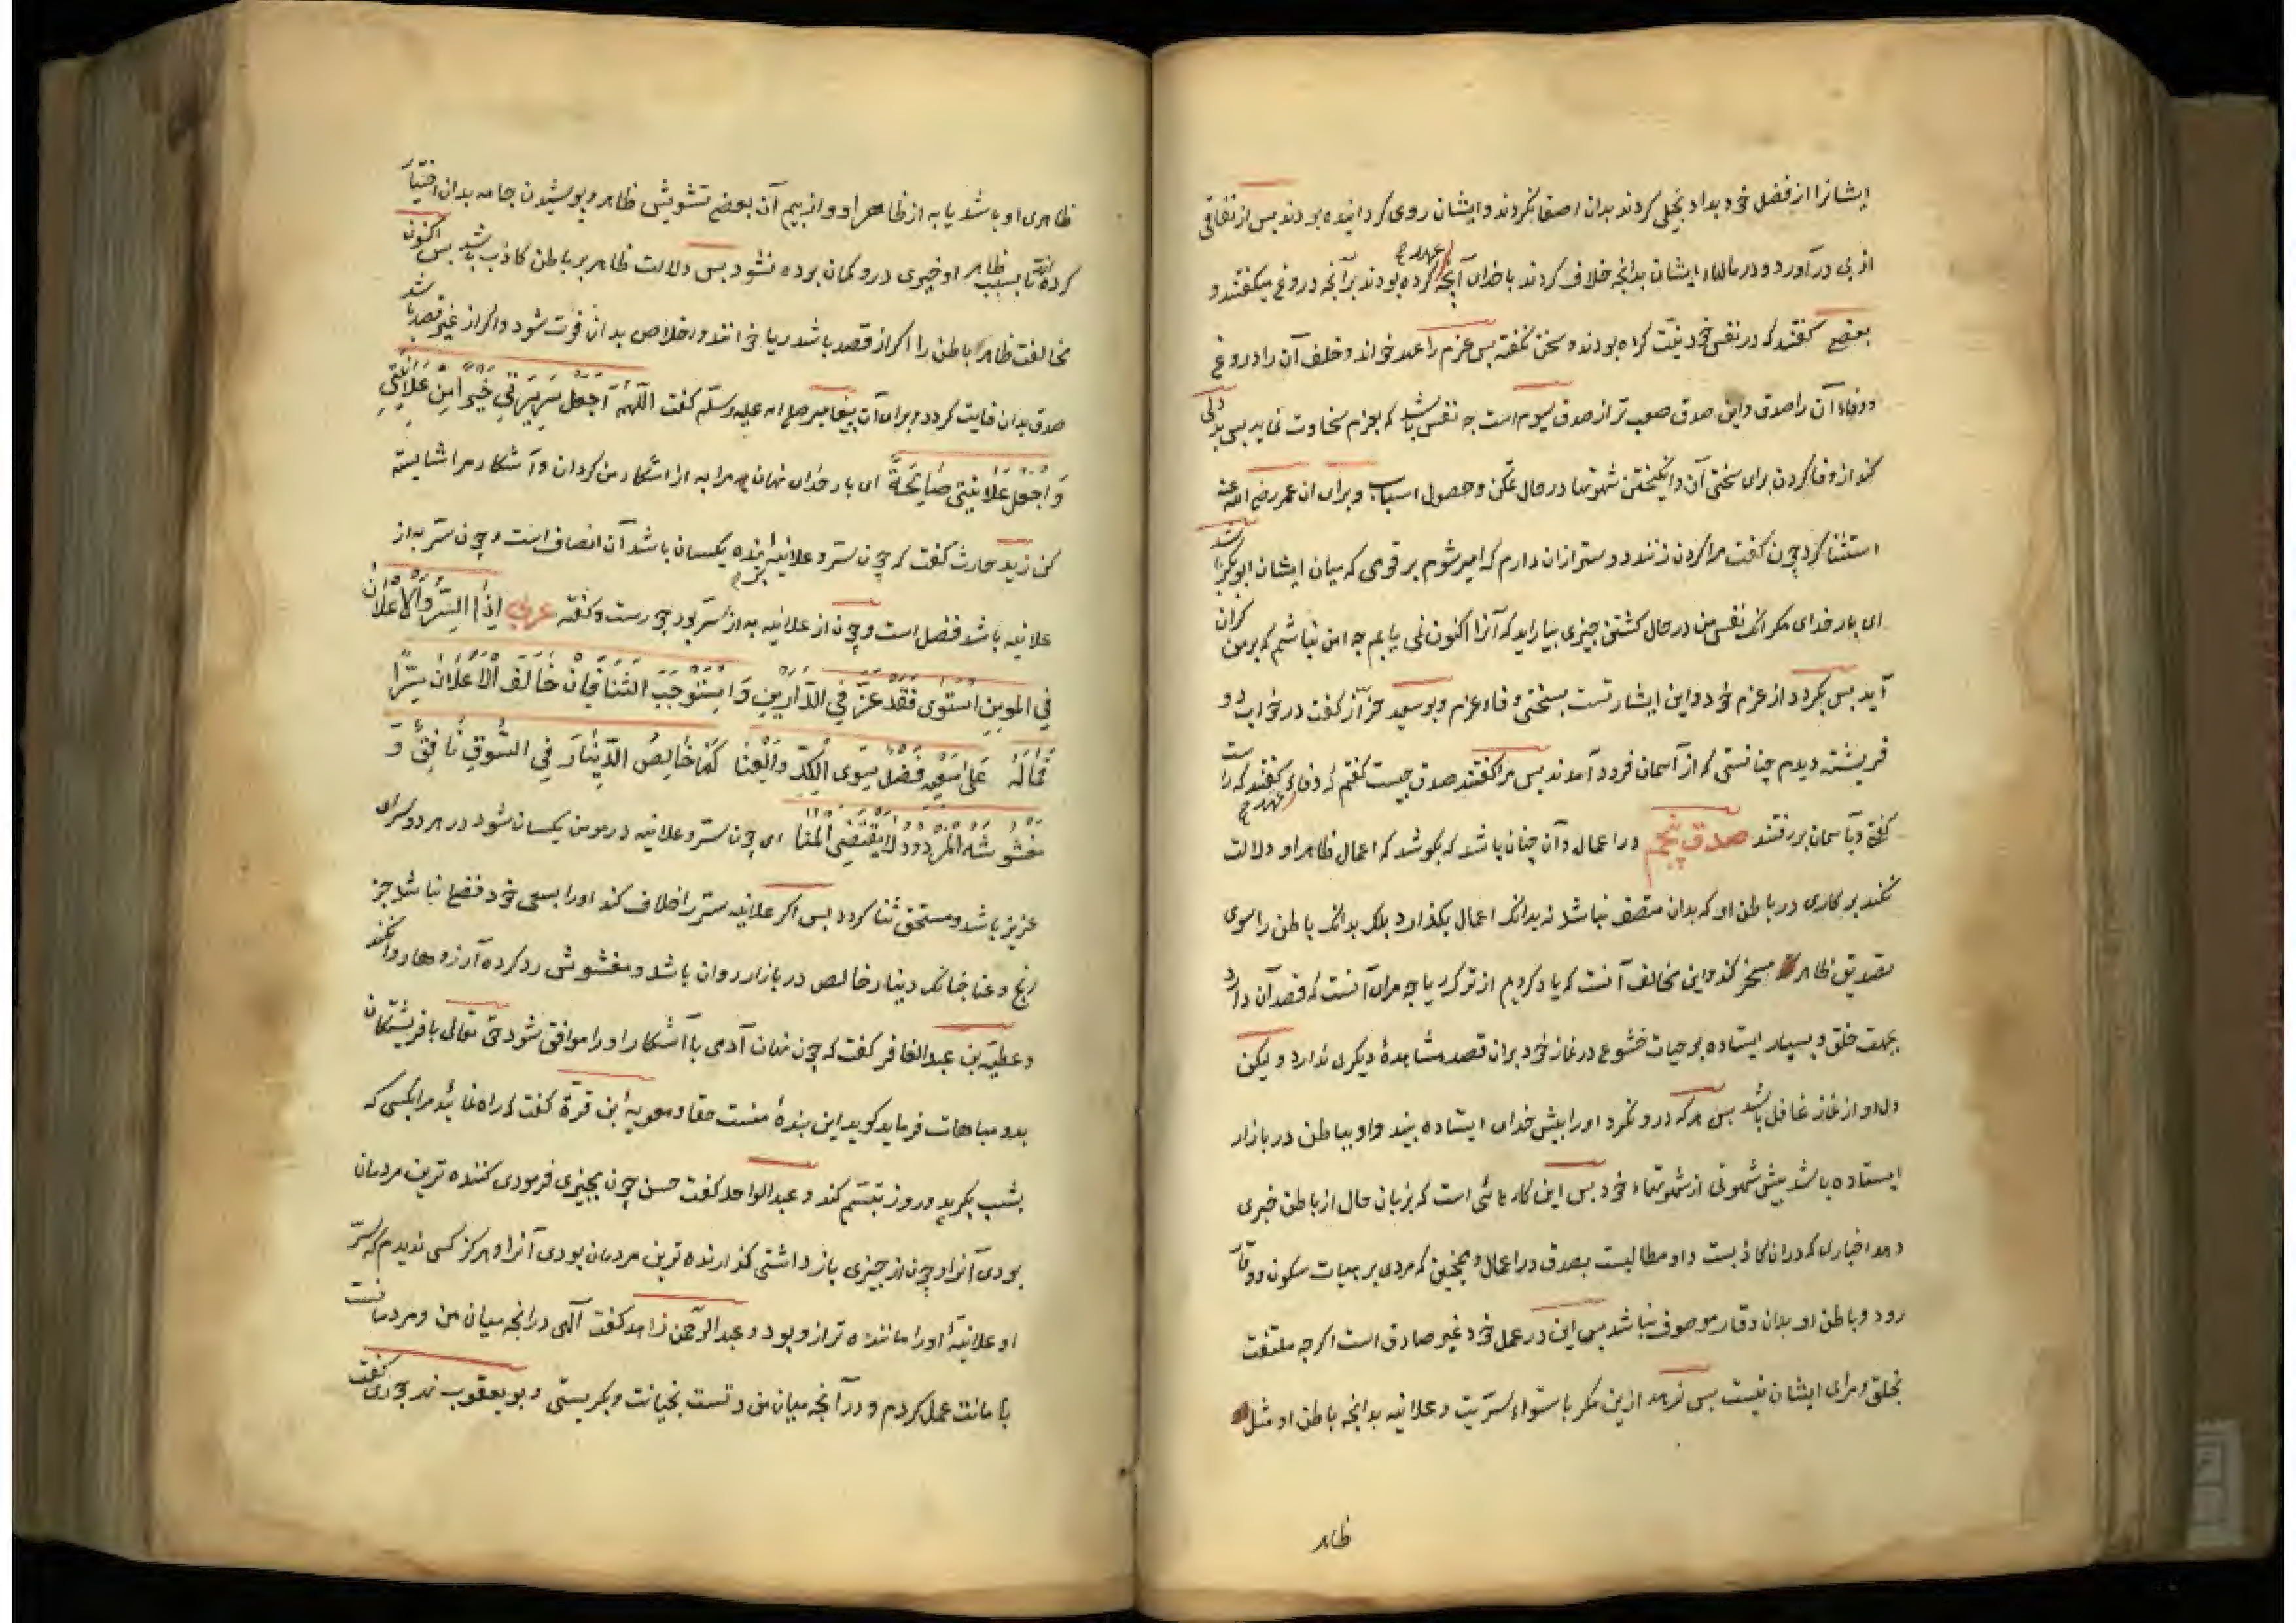 ایشانرا از فضل خود بداد بخیلی کردند بدان و صدقه نکردند و ایشان روی گردانیده بودند پس از نفاقی
ازیی درآورد و در دلهاء ایشان بدانچه خلاف کردند با خدای آنچه عهد کرده بودند برآنچه دروغ میکفتند و
بعضی کفتند که در نفس خود نیّت کرده بودند و سخن نکفته پس عزم را عهد خواند و خلف آن را دروغ
و وفاء آن را صدق و این صدق صعب تر از صدق سیوم است چه نفس باشد که بعزم سخاوت نماید پس بددلی
کند از وفا کردن برای سختی آن و انکیختن شهوتها در حال تمکن و حصول اسباب و برای ان عمر رضی الله عنه
استثنا کرد چون کفت مرا کردن زنند دوستر ازان دارم که امیر شوم بر قومی که میان ایشان ابوبکر باشد
ای بار خدای مکر آنک نفس من در حال کشتن چیزی بیاراید که آنرا اکنون نمی یابم چه امن نباشم که برمن کران
آید پس بکردد از عزم خود و این اشارتست بسختی وفاء عزم و بوسعید خرّاز کفت در خواب دو
فریشته دیدم چنانستی که از آسمان فرود آمدند پس مرا کفتند صدق چیست کفتم که وفاء عهد کفتند که راست
کفتی و بآسمان بر رفتند صدق پنجم در اعمال و آن چنان باشد که بکوشد که اعمال ظاهر او دلالت
نکند بر کاری در باطن او که بدان متصف نباشد نه بدانک اعمال بکذارد بلک بدانک باطن را سوی
تصدیق ظاهر مسخر کند و این مخالف آنست که یاد کردیم از ترک ریا چه مرای آنست که قصد آن دارد
بجهت خلق و بسیار ایستاده بر هیات خشوع در نماز خود بران قصد مشاهدهٔ دیکری ندارد و لیکن
دل او از نماز غافل باشد پس هرکه درو نکرد او را پیش خدای ایستاده بیند و او بباطن در بازار
ایستاده باشد پیش شهوتی از شهوتهاء خود پس این کارهائی است که بزبان حال از باطن خبری
دهد اخباری که دران کاذبست و او مطالبست بصدق در اعمال و همچنین که مردی بر هیات سکون و وقار
رود و باطن او بدان وقار موصوف نباشد پس این در عمل خود غیر صادق است اکرچه ملتفت
بخلق و مرای ایشان نیست پس نرهد ازین مکر باستواء سرّیت و علانیه بدانچه باطن او مثل
ظاهر
ظاهری او باشد یا به از ظاهر او و از بیم آن بعضی تشویش ظاهر و پوشیدن جامه بدان اختیار
کرده اند تا بسبب ظاهر او خیری درو کمان برده نشود پس دلالت ظاهر بر باطن کاذب باشد پس اکنون
مخالفت ظاهر باطن را اکر از قصد باشد ریا خوانند و اخلاص بدان فوت شود و اکر از غیر قصد باشد
صدق بدان فایت کردد و برای آن پیغامبر صلی الله علیه وسلّم کفت اَللّٰهُمَّ اجْعَلْ سَرِیرَتِی خَیْراً مِنْ عَلَانِیَتِی
وَاجْعَلْ عَلَانِیَتِی صَالِحَةً ای بار خدای نهان مرا به از آشکار من کردان و آشکار مرا شایسته
کن زید حارث کفت که چون سرّ و علانیهٔ بنده یکسان باشد آن انصاف است و چون سرّ به از
علانیه باشد فضل است و چون علانیه به از سرّ بود جورست و کفته عربی اِذَا السِّرُّ وَالْاِعْلَانُ
فِی الْمُومِنِ اسْتَوٰی فَقَدْ عَزَّ فِی الدَّارَیْنِ وَاسْتَوْجَبَ الثَّنَا فَاِنْ خَالَفَ الْاِعْلَانُ سِرّاً
فَمَالَهُ عَلٰی سَعْیِهِ فَضْلٌ سِوَی الْکَدِّ وَالْعَنَا کَمَا خَالِصُ الدِّینَارِ فِی السُّوقِ نَافِقٌ وَ
مَغْشُوشُهُ الْمَرْدُودُ لَا یَقْتَضِی الْمُنَا ای چون سرّ و علانیه در مومن یکسان شود در هر دو سرای
عزیز باشد و مستحق ثنا کردد پس اکر علانیه سرّ را خلاف کند او را بسعی خود فضلی نباشد جز
رنج و عنا چنانک دینار خالص در بازار روان باشد و مغشوش رد کرده آرزوها روا نکند
و عطیّه بن عبدالغافر کفت که چون نهان آدمی با آشکارا او را موافق شود حق تعالی با فریشتکان
بدو مباهات فرماید کوید این بندهٔ منست حقا و معویهٔ بن قرّة کفت که راه نمائید مرا بکسی که
بشب بکرید و روز تبسّم کند و عبدالواحد کفت حسن چون بچیزی فرمودی کننده ترین مردمان
بودی آنرا و چون از چیزی باز داشتی کذارنده ترین مردمان بودی آنرا و هرکز کسی ندیدم که سرّ
او علانیهٔ او را ماننده تر ازو بود و عبدالرّحمن زاهد کفت آلهی درانچه میان من و مردمانست
بامانت عمل کردم و درآنچه میان من و تست بخیانت و بکریستی و بویعقوب نهرجوری کفت